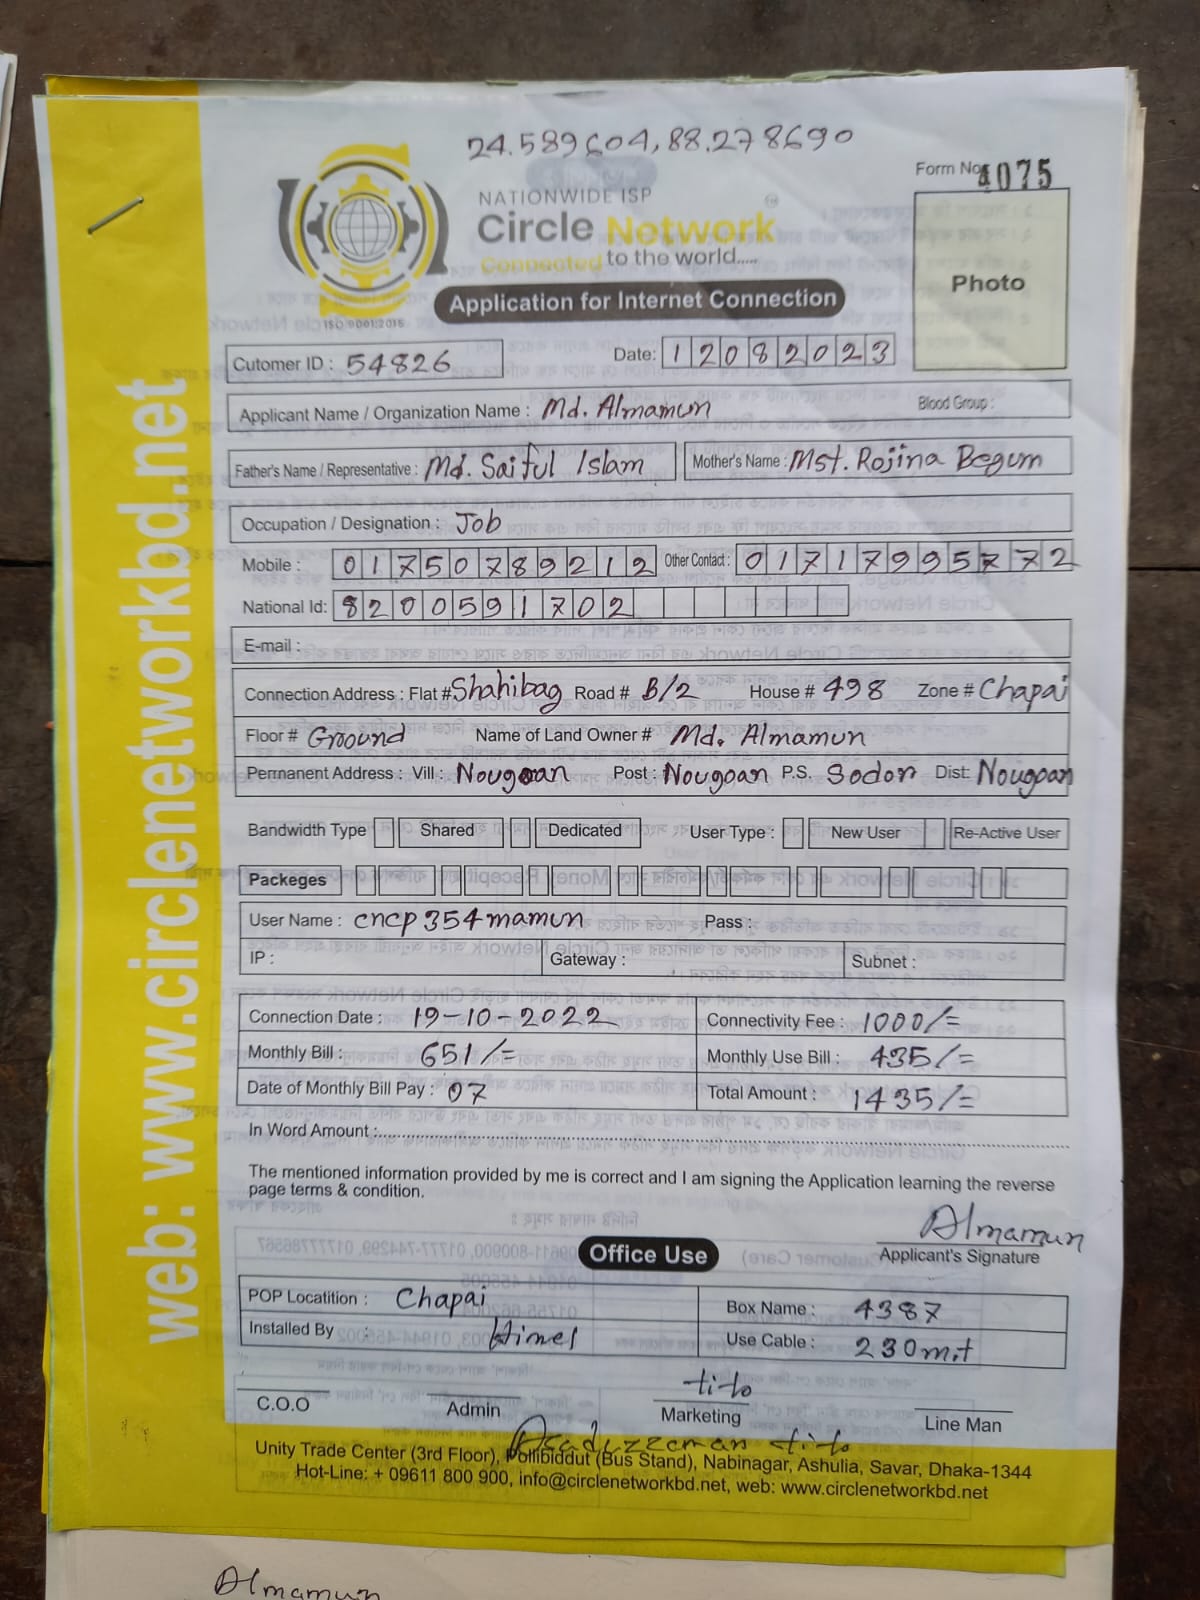 24.589604,88.278690
Form No. 4075
NATIONWIDE ISP
Circle Network
Connected to the world.....
ISO 9001:2015
Application for Internet Connection
Photo
Cutomer ID : 54826
Date: 12082023
Applicant Name / Organization Name : Md. Almamun
Blood Group :
Father's Name / Representative : Md. Saiful Islam Mother's Name : Mst. Rojina Begum
Occupation / Designation : Job
Mobile : 01750789212 Other Contact : 01717995772
National Id: 8200591702
E-mail :
Connection Address : Flat # Shahibag Road # B/2 House # 498 Zone # Chapai
Floor # Ground Name of Land Owner # Md. Almamun
Permanent Address : Vill : Nougoan Post : Nougoan P.S. Sodor Dist: Nougoan
Bandwidth Type Shared Dedicated User Type : New User Re-Active User
Packeges
User Name : cncp354mamun Pass :
IP : Gateway : Subnet :
Connection Date : 19-10-2022 Connectivity Fee : 1000/=
Monthly Bill : 651/= Monthly Use Bill : 435/=
Date of Monthly Bill Pay : 07 Total Amount : 1435/=
In Word Amount :
The mentioned information provided by me is correct and I am signing the Application learning the reverse
page terms & condition.
Almamun
Applicant's Signature
Office Use
POP Locatition : Chapai Box Name : 4387
Installed By : Himel Use Cable : 230mit
tito
C.O.O Admin Marketing Line Man
Asaduzzaman tito
Unity Trade Center (3rd Floor), Pollibiddut (Bus Stand), Nabinagar, Ashulia, Savar, Dhaka-1344
Hot-Line: + 09611 800 900, info@circlenetworkbd.net, web: www.circlenetworkbd.net
web: www.circlenetworkbd.net
Almamun